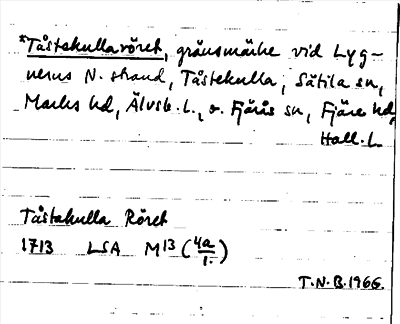 *Tåstekullaröret, gränsmärke vid Lyg-
nerns N. strand, Tåstekulla, Sätila sn,
Marks hd, Älvsb. l., o. Fjärås sn, Fjäre hd,
Hall. l.
Tåstakulla Röret
1713 LSA M13 (4a/1.)
T.N.B. 1966.